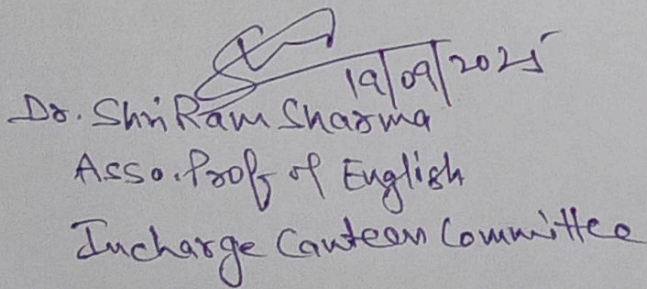 19/09/2025
Dr. Shri Ram Sharma
Asso. Prof of English
Incharge Canteen Committee